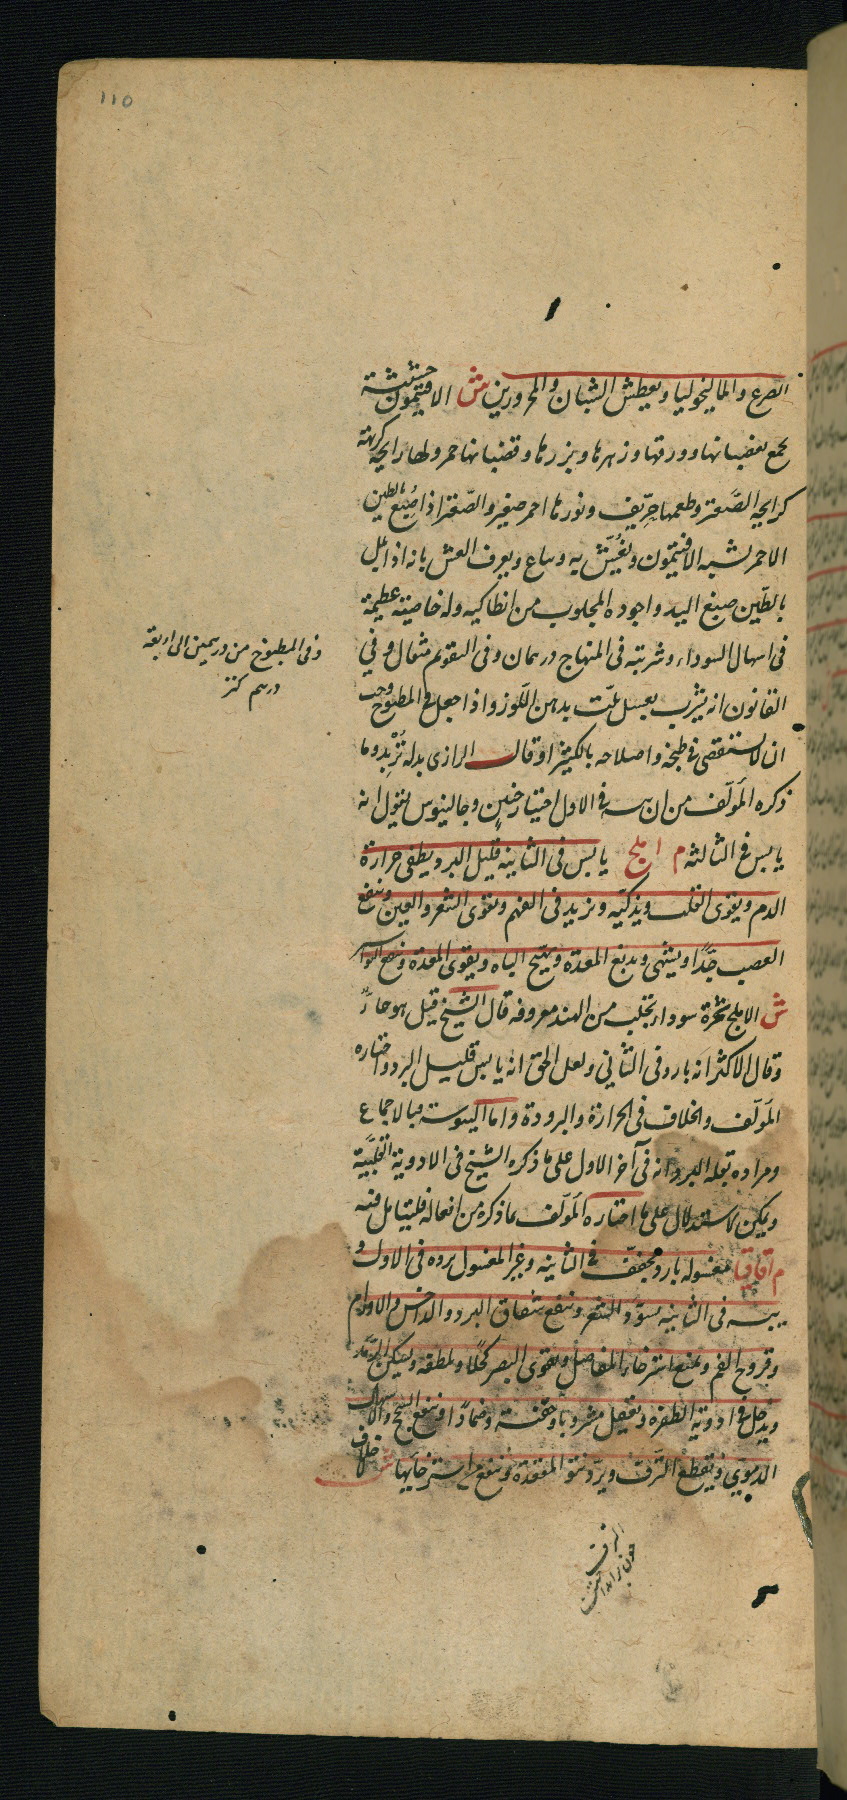 ١١٥
الصرع والماليخوليا ويعطش الشبان والمحرورين ش الافتيمون حشيشة
يجمع بقضبانها وورقها وزهرها وبزرها وقضبانها حمر ولها رايحة كريهة
كرايحة الصعتر وطعمها حِرّيف ونورها احمر صغير والصعتر اذا صُبغ بالطين
الاحمر يشبه الافتيمون ويُغَشّ به ويباع ويعرف الغش بانه اذا بل
بالطين صبغ اليد واجوده المجلوب من انطاكيه وله خاصية عظيمة
فى اسهال السوداء وشربته فى المنهاج درهمان وفى التقويم مثقال وفي
القانون انه يشرب بعسل يلت بدهن اللوز واذا جعل فى المطبوخ وجب
ان لا يستقصى فى طبخه واصلاحه بالكثيرا وقال الرازى بدله تُرْبد وما
ذكره المؤلّف من ان يبسه فى الاول اختيار حنين وجالينوس يقول انه
يابس فى الثالثه م املج يابس فى الثانيه قليل البرد ويطفى حرارة
الدم ويقوى القلب ويذكيّه ويزيد فى الفهم ويقوى الشعر والعين وينفع
العصب جدًّا ويشهى ويدبغ المعدة ويهيّج الباه ويقوى المعدة وينفع البواسير
ش الاملج ثمرة سوداء تجلب من الهند معروفه قال الشيخ قيل هو حارّ
وقال الاكثر انه بارد فى الثاني ولعل الحق انه يابس قليل البرد واختاره
المؤلّف والخلاف فى الحرارة والبرودة واما اليبوسة فبالاجماع
ومراده بقله البرد انه فى آخر الاول على ما ذكره الشيخ فى الادوية القلبيّة
ويمكن الاستدلال على ما اختاره المؤلّف بما ذكره من افعاله فليتامل فيه
م اقاقيا مغسوله بارد مجفّف فى الثانيه وغير المغسول برده فى الاول و
يبسه فى الثانيه يسوّد الشعر وينفع شقاق البرد والداخس والاورام
وقروح الفم ويمنع استرخاء المفاصل ويقوى البصر كحلًا ويلطفه ويسكن الرمد
ويدخل فى ادوية الظفره ويعقل مشروبا وحقنة وضمادًا وينفع السحج والاسهال
الدموي ويقطع النزف ويردّ نتوّ المقعدة وينفع من استرخائها ش خلاف
وفى المطبوخ من درهمين الى اربعة
درهم كنز